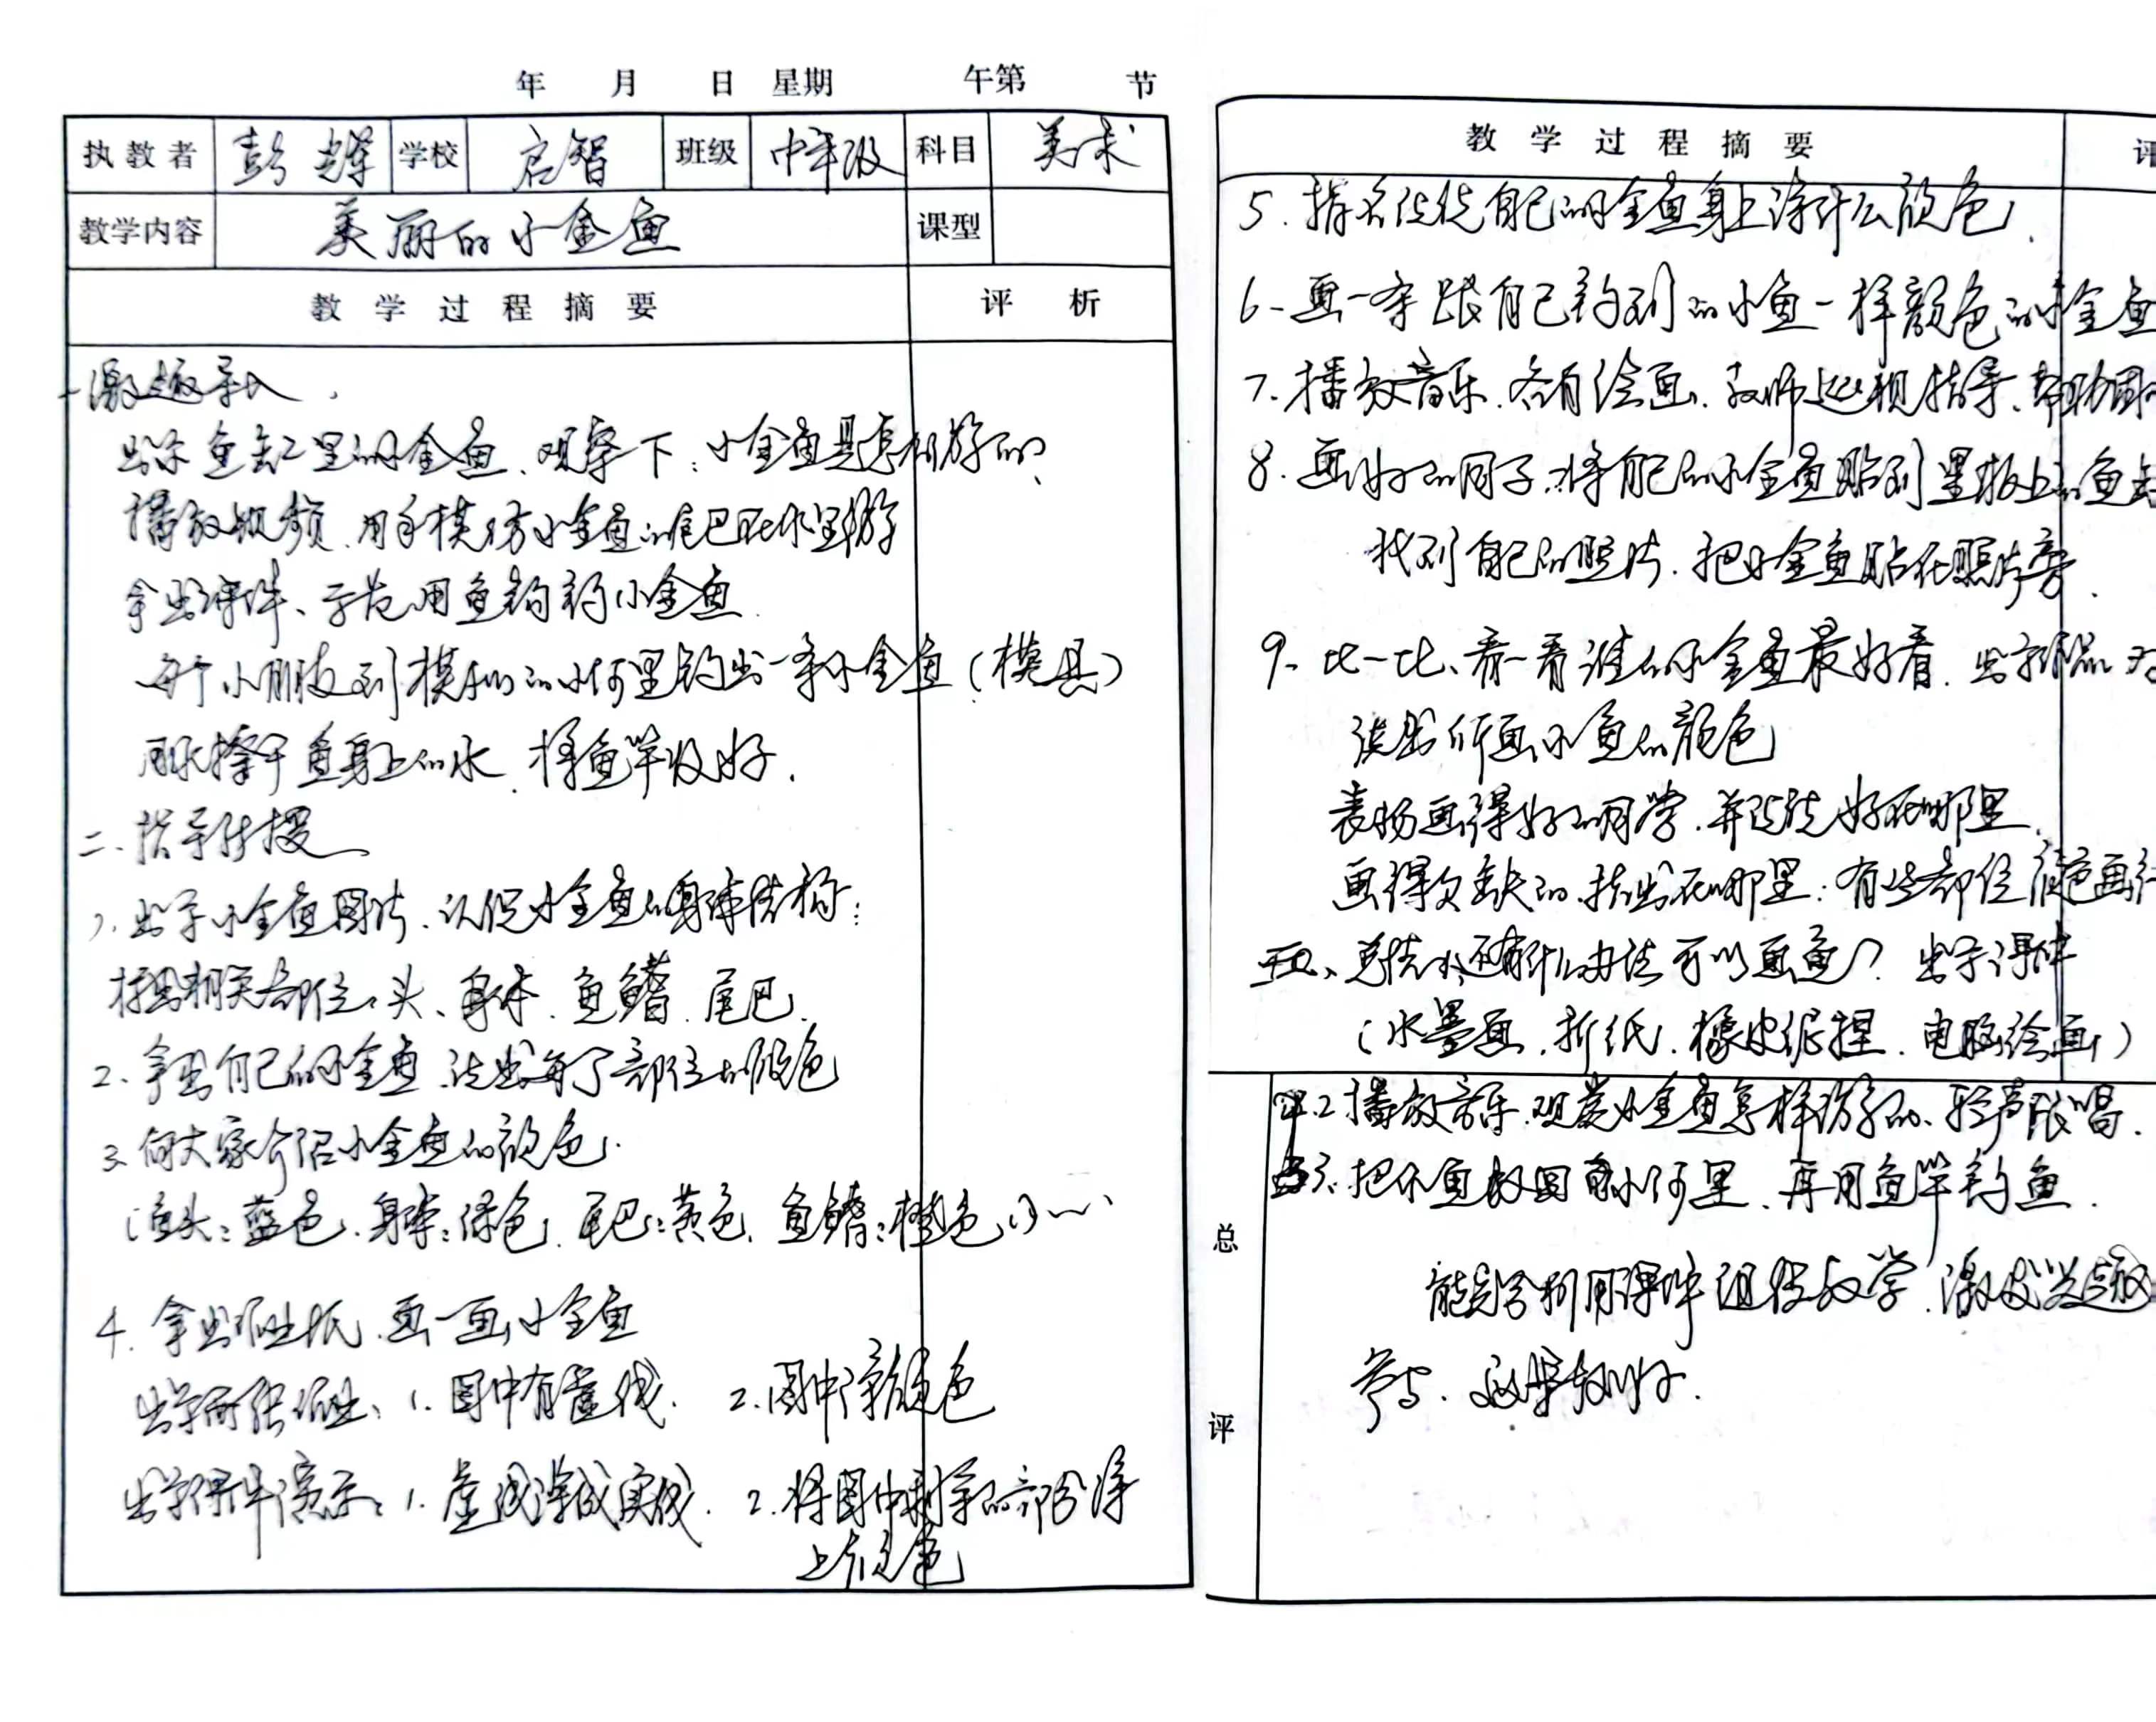 年 月 日 星期 午第 节
执教者 彭 学校 启智 班级 中年级 科目 美术
教学内容 美丽的小金鱼 课型
教学过程摘要 评析
一、激趣导入
出示鱼缸里的小金鱼、观察下:小金鱼是怎样游的、
播放视频、用手模仿小金鱼的尾巴在水里游
拿出课件、示范用鱼钩钓小金鱼.
每个小朋友到模拟的小河里钓出一条小金鱼(模具)
擦干鱼身上的水、将鱼竿收好.
二、指导传授
1、出示小金鱼图片、认识小金鱼的身体结构:
指出相关部位:头、身体、鱼鳍、尾巴.
2、拿出自己的小金鱼、说出每个部位的颜色
3、向大家介绍小金鱼的颜色.
(鱼头:蓝色、身体:绿色、尾巴:黄色、鱼鳍:橙色)……
4、拿出作业纸、画一画小金鱼
出示两张作业:1.图中有虚线. 2.图中涂颜色
出示课件演示:1.虚线涂成实线. 2.将图中剩余的部分涂
上颜色
教学过程摘要 评
5.指名说说自己的小金鱼身上涂什么颜色.
6、画一条跟自己钓到的小鱼一样颜色的小金鱼
7.播放音乐、各自绘画、教师巡视指导、帮助
8.画好的同学、将自己的小金鱼贴到黑板上的鱼
找到自己的照片、把小金鱼贴在照片旁.
9、比一比、看一看谁的小金鱼最好看、出示作品
说出所画小鱼的颜色
表扬画得好的同学、并说说好在哪里.
画得欠缺的、指出在哪里:有些部位颜色画
三、总结1、还有什么办法可以画鱼?出示课件
(水墨画、折纸、橡皮泥捏、电脑绘画)
2.播放音乐、观赏小金鱼怎样游的、轻声跟唱.
3、把小鱼放回到小河里、再用鱼竿钓鱼.
总评
能充分利用课件组织教学、激发兴趣
参与、效果较好.